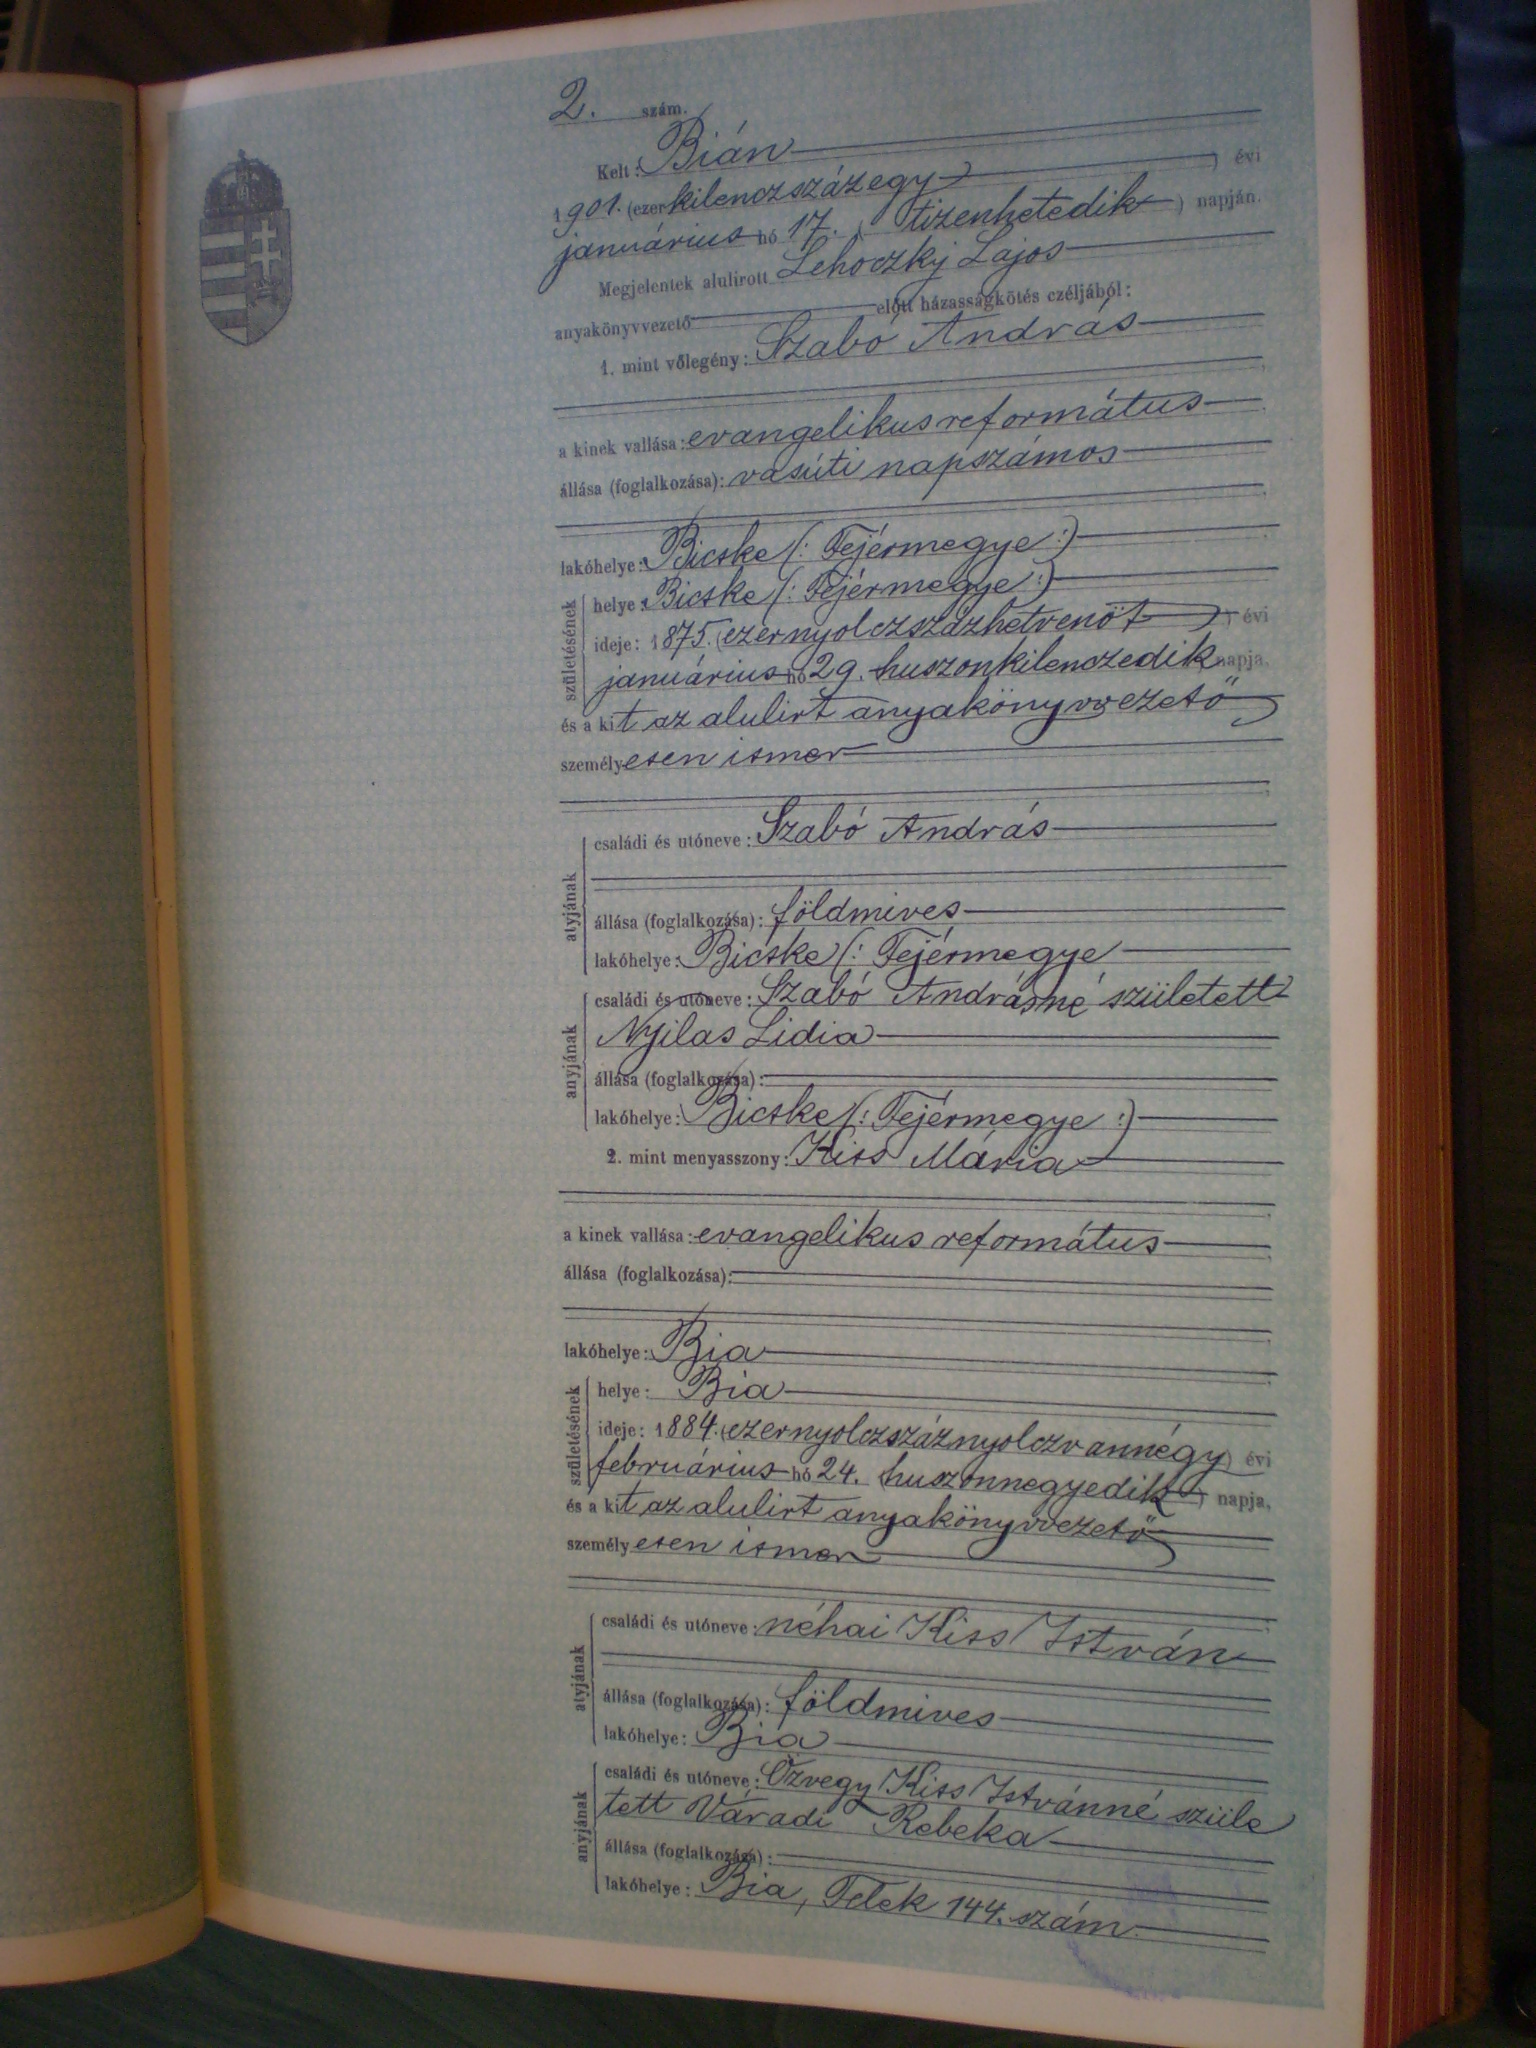 2. szám.
Kelt: Bián
1901. (ezerkilenczszázegy) évi
januárius hó 17. (tizenhetedik) napján.
Megjelentek alulirott Lehoczky Lajos
anyakönyvvezető előtt házasságkötés czéljából:
1. mint vőlegény: Szabó András
a kinek vallása: evangelikus református
állása (foglalkozása): vasúti napszámos
lakóhelye: Bicske (: Fejérmegye :)
születésének
helye: Bicske (: Fejérmegye :)
ideje: 1875. (ezernyolczszázhetvenöt) évi
januárius hó 29. huszonkilenczedik napja,
és a kit az alulirt anyakönyvvezető
személyesen ismer
atyjának
családi és utóneve: Szabó András
állása (foglalkozása): földmives
lakóhelye: Bicske (: Fejérmegye
anyjának
családi és utóneve: Szabó Andrásné született
Nyilas Lidia
állása (foglalkozása):
lakóhelye: Bicske (: Fejérmegye :)
2. mint menyasszony: Kiss Mária
a kinek vallása: evangelikus református
állása (foglalkozása):
lakóhelye: Bia
születésének
helye: Bia
ideje: 1884. (ezernyolczszáznyolczvannégy) évi
februárius hó 24. (huszonnegyedik) napja,
és a kit az alulirt anyakönyvvezető
személyesen ismer
atyjának
családi és utóneve: néhai Kiss István
állása (foglalkozása): földmives
lakóhelye: Bia
anyjának
családi és utóneve: Özvegy Kiss Istvánné szüle
tett Váradi Rebeka
állása (foglalkozása):
lakóhelye: Bia, Telek 144. szám